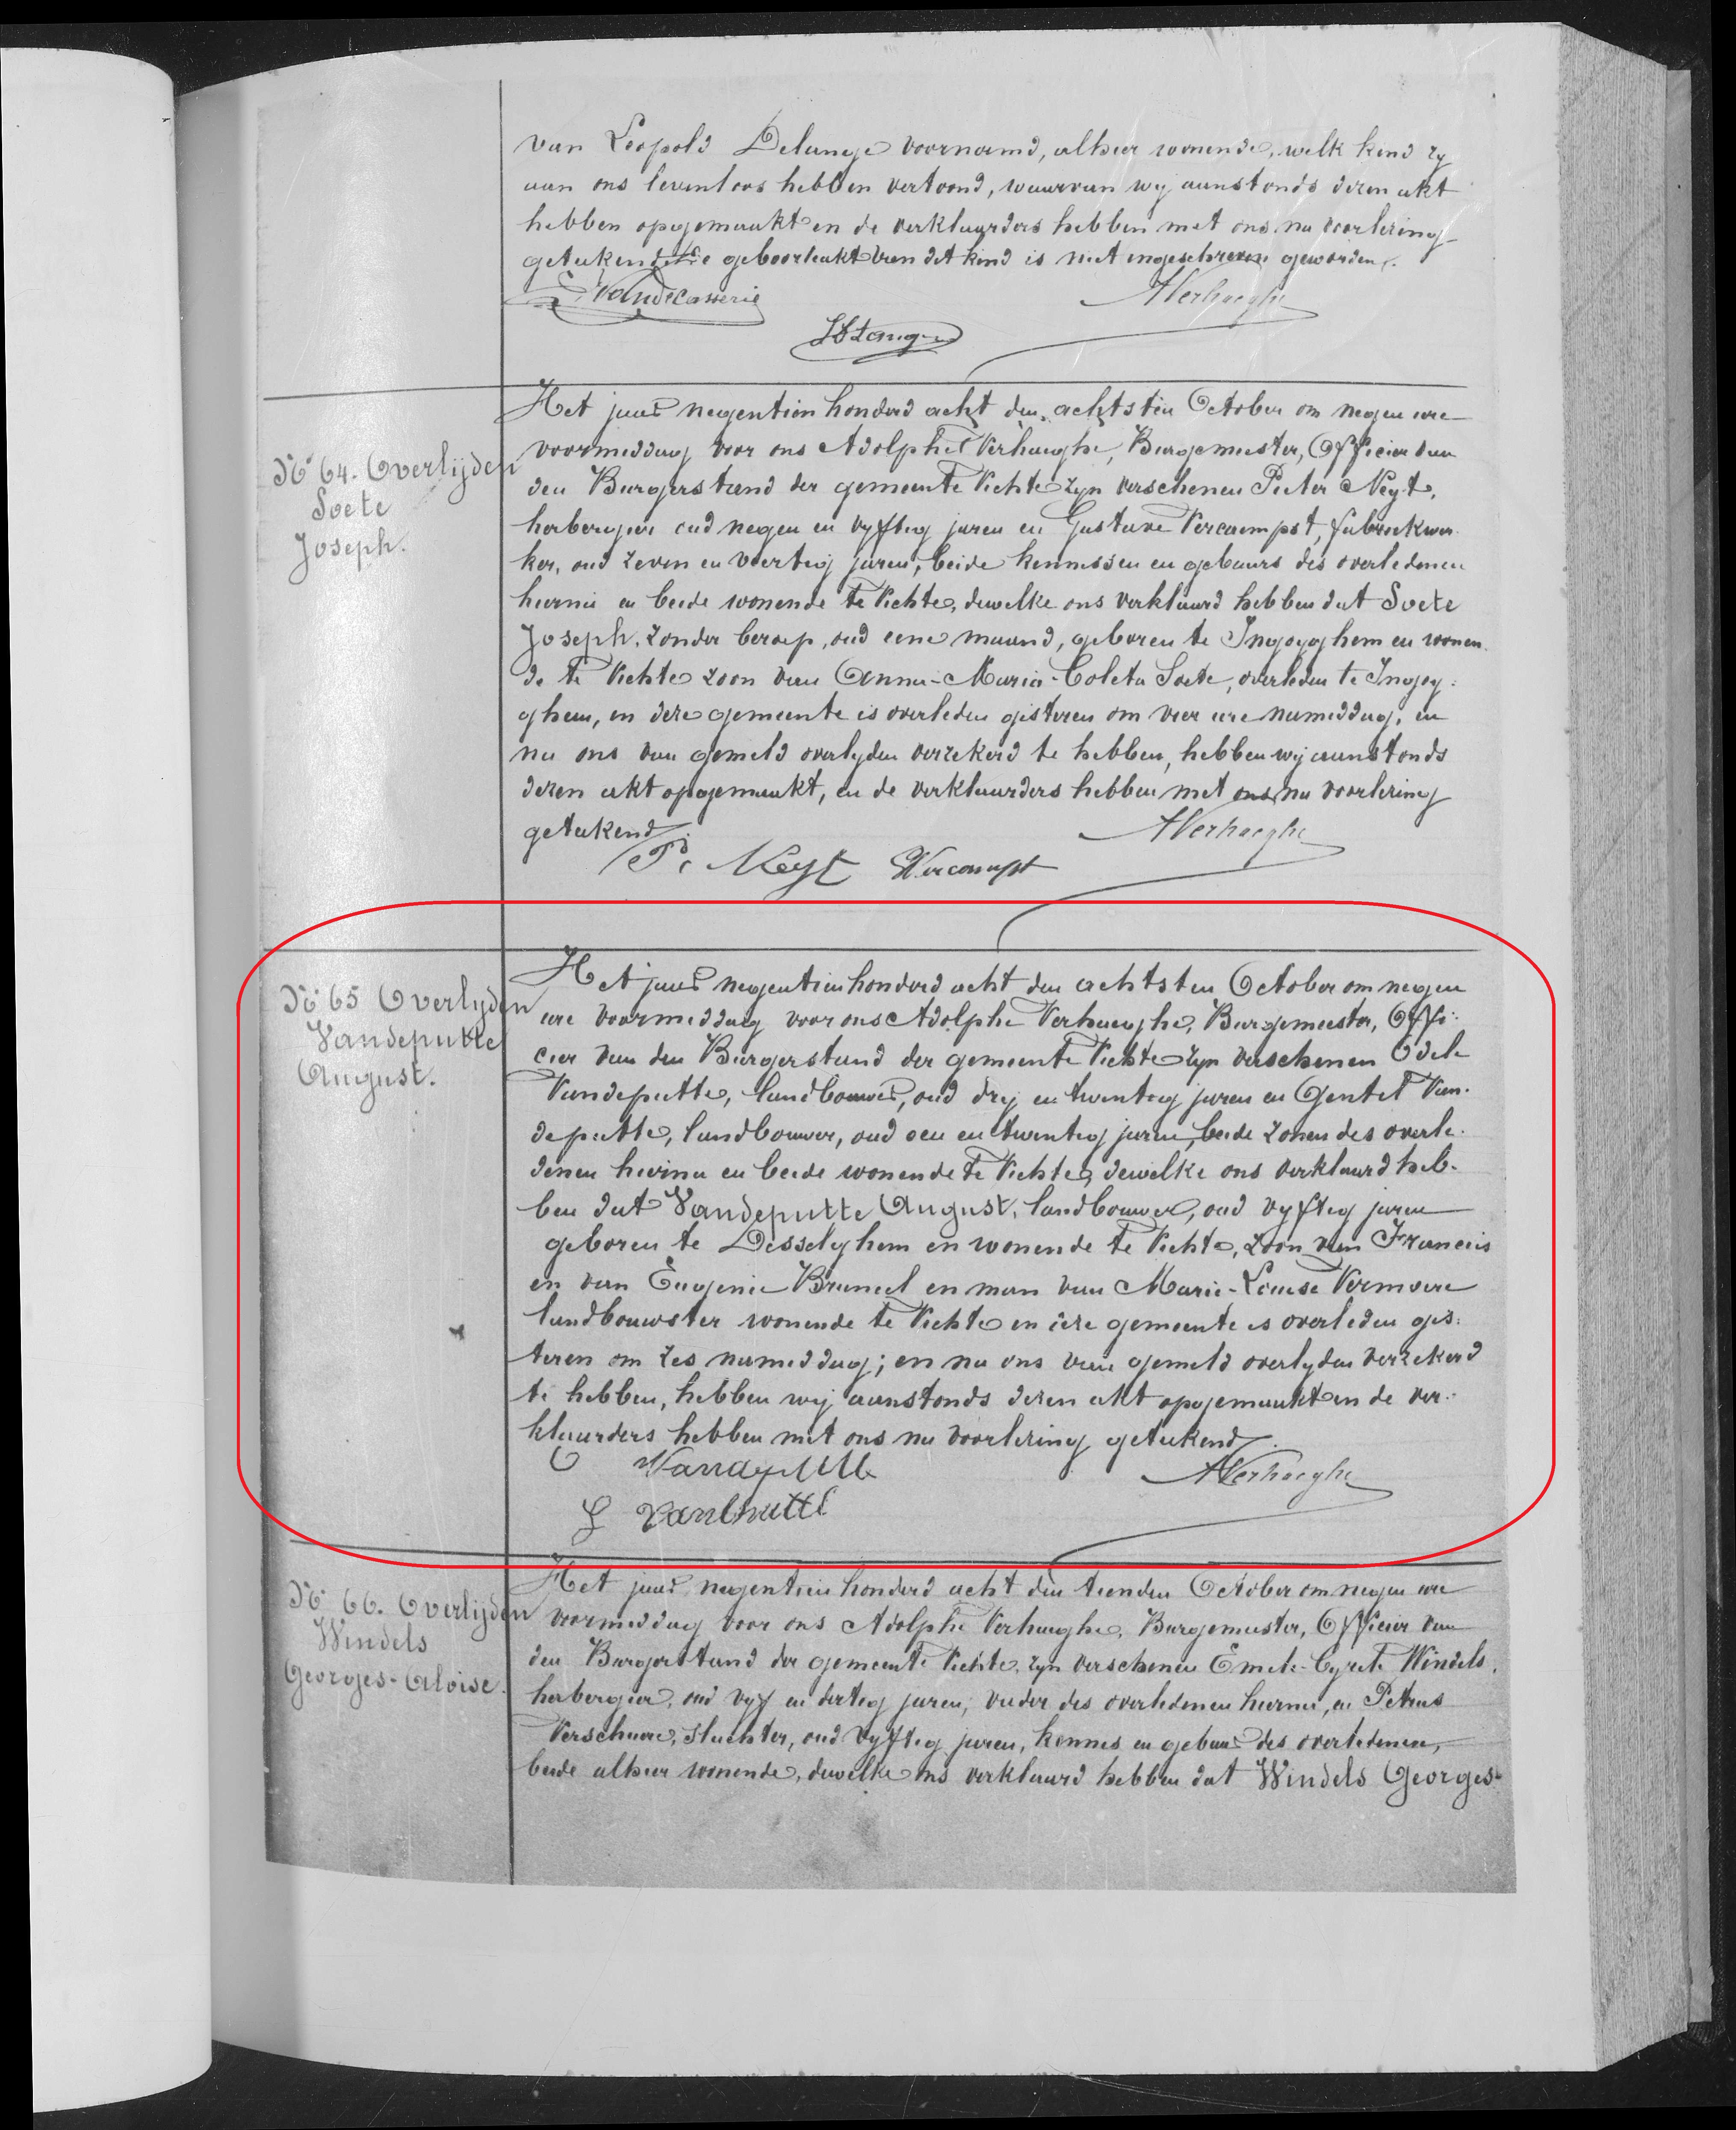 van Leopold Delange voornoemd, alhier wonende, welk kind zy
aan ons levenloos hebben vertoond, waarvan wy aanstonds dezen akt
hebben opgemaakt en de verklaarders hebben met ons na voorlezing
geteekend. De geboorteakt van dit kind is niet ingeschreven geworden.
Vandecasserie
AVerhaeghe
Het jaar negentien honderd acht den achtsten October om negen ure
voormiddag voor ons Adolphe Verhaeghe, Burgemeester, Officier van
den Burgerstand der gemeente Vichte zyn verschenen Pieter Neyt,
herbergier oud negen en vyftig jaren en Gustave Vercaempst, fabriekwer
ker, oud zeven en veertig jaren, beide kennissen en gebuurs des overledenen
hierna en beide wonende te Vichte, dewelke ons verklaard hebben dat Soete
Joseph, zonder beroep, oud eene maand, geboren te Ingoyghem en wonen
de te Vichte zoon van Anna-Maria-Coleta Soete, overleden te Ingoy-
ghem, in deze gemeente is overleden gisteren om vier ure namiddag, en
na ons van gemeld overlyden verzekerd te hebben, hebben wij aanstonds
dezen akt opgemaakt, en de verklaarders hebben met ons na voorlezing
geteekend.
AVerhaeghe
P. Neyt GVercampst
No 64. Overlijden
Soete
Joseph.
No 65 Overlyden
Vandeputte
August.
Het jaar negentien honderd acht den achtsten October om negen
ure voormiddag voor ons Adolphe Verhaeghe, Burgemeester, Offi-
cier van den Burgerstand der gemeente Vichte zyn verschenen Odile
Vandeputte, landbouwer, oud dry en twintig jaren en Gentil Van-
deputte, landbouwer, oud een en twintig jaren, beide zonen des overle-
denen hierna en beide wonende te Vichte, dewelke ons verklaard heb-
ben dat Vandeputte August, landbouwer, oud vyftig jaren
geboren te Desselghem en wonende te Vichte, zoon van Francis
en van Eugenie Bruneel en man van Marie-Louise Vermoere
landbouwster wonende te Vichte in deze gemeente is overleden gis-
teren om zes namiddag; en na ons van gemeld overlyden verzekerd
te hebben, hebben wij aanstonds dezen akt opgemaakt en de ver-
klaarders hebben met ons na voorlezing geteekend.
O Vandeputte
AVerhaeghe
G Vandeputte
No 66. Overlijden
Windels
Georges-Aloise.
Het jaar negentien honderd acht den tienden October om negen ure
voormiddag voor ons Adolphe Verhaeghe, Burgemeester, Officier van
den Burgerstand der gemeente Vichte, zyn verschenen Emile-Cyrille Windels,
herbergier, oud vyf en dertig jaren, vader des overledenen hierna, en Petrus
Verschuere, slachter, oud vyftig jaren, kennis en gebuur des overledenen,
beide alhier wonende, dewelke ons verklaard hebben dat Windels Georges-